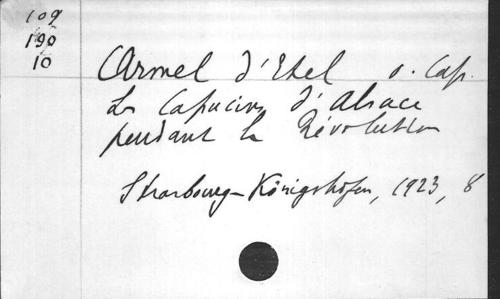 109
190
10
Armel d'Etel o. Cap.
Les Capucins d'Alsace
pendant la Révolution
Strasbourg-Königshofen, 1923, 8